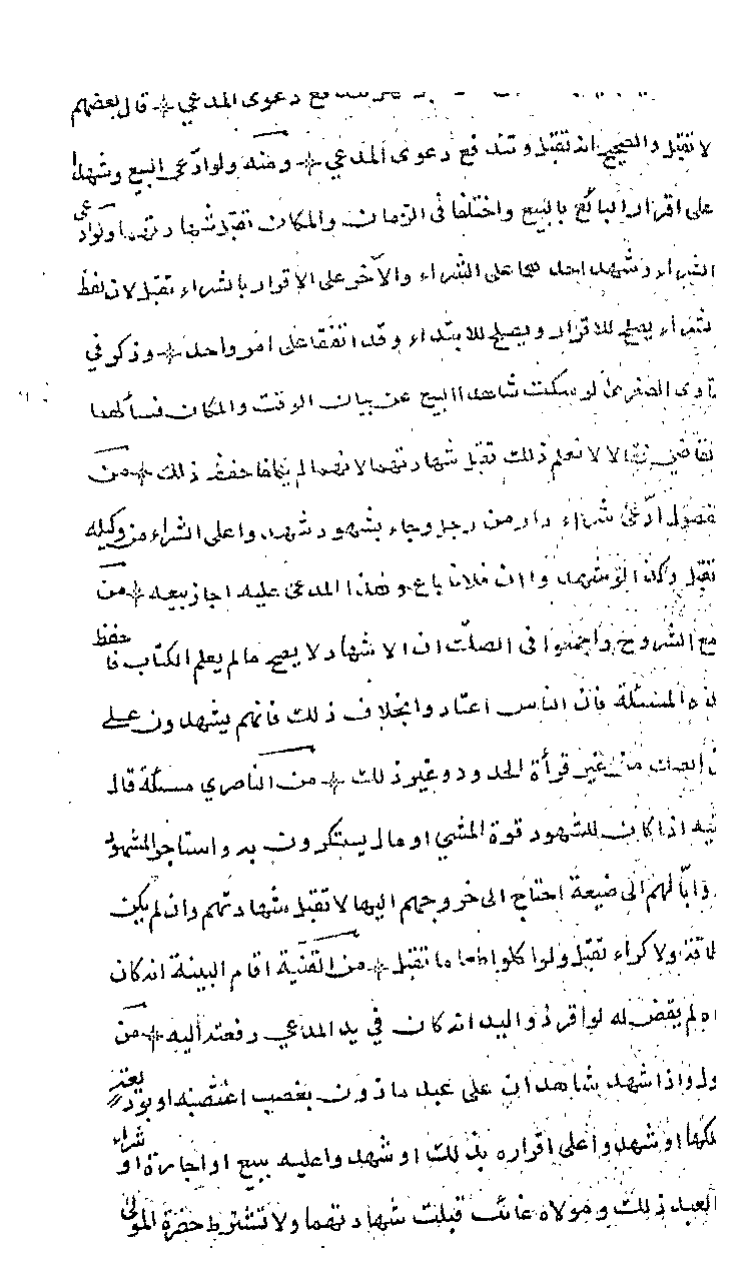 دعوى المدعي قال بعضهم
لا تقبل والصحيح انه تقبل وتندفع دعوى المدعي ومنه ولو ادعى البيع وشهدا
على اقرار البائع بالبيع واختلفا في الزمان والمكان تقبل شهادتهما ولو ادعى
الشراء وشهد احدهما على الشراء والآخر على الاقرار بالشراء تقبل لان لفظ
الشراء يصلح للاقرار ويصلح للابتداء وقد اتفقا على امر واحد وذكر في
الصغرى لو سكت شاهدا البيع عن بيان الوقت والمكان فسألهما
القاضي فقالا لا نعلم ذلك تقبل شهادتهما لانهما لم يكلفا حفظ ذلك من
ادعى شراء دار من رجل وجاء بشهود شهدوا على الشراء من وكيله
تقبل وكذا لو شهدوا ان فلانا باع وهذا المدعى عليه اجاز بيعه من
الشروح واجمعوا في الصك ان الاشهاد لا يصح ما لم يعلم الكتاب فاحفظ
المسئلة فان الناس اعتادوا بخلاف ذلك فانهم يشهدون على
الصك من غير قرأة الحدود وغير ذلك من الناصري مسئلة قال
اذا كان للشهود قوة المشي او مال يستكرون به واستاجر المشهود
دوابا لهم الى ضيعة احتاج الى خروجهم اليها لا تقبل شهادتهم وان لم يكن
طاقة ولا كراء تقبل ولو اكلوا طعاما تقبل من القنية اقام البينة انه كان
لم يقض له لو اقر ذو اليد انه كان في يد المدعي دفعته اليه من
واذا شهد شاهدان على عبد ماذون بغصب اغتصبه او بوديعة
او شهدوا على اقراره بذلك او شهدوا عليه ببيع او اجارة او شراء
العبد ذلك ومولاه غائب قبلت شهادتهما ولا تشترط حضرة المولى